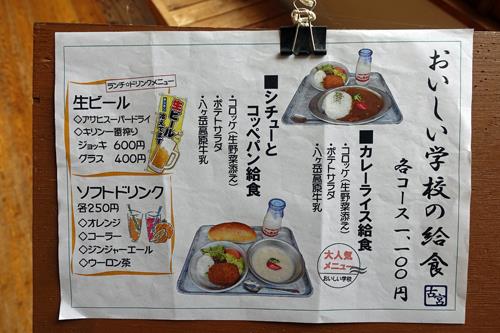 おいしい学校の給食
各コース一、一〇〇円
■カレーライス給食
・コロッケ(生野菜添え)
・ポテトサラダ
・八ヶ岳高原牛乳
大人気
メニュー
おいしい学校
■シチューと
コッペパン給食
・コロッケ(生野菜添え)
・ポテトサラダ
・八ヶ岳高原牛乳
ランチ☆ドリンクメニュー
生ビール
◇アサヒスーパードライ
◇キリン一番搾り
ジョッキ 600円
グラス 400円
生ビール
冷えてます
ソフトドリンク
各250円
◇オレンジ
◇コーラー
◇ジンジャーエール
◇ウーロン茶